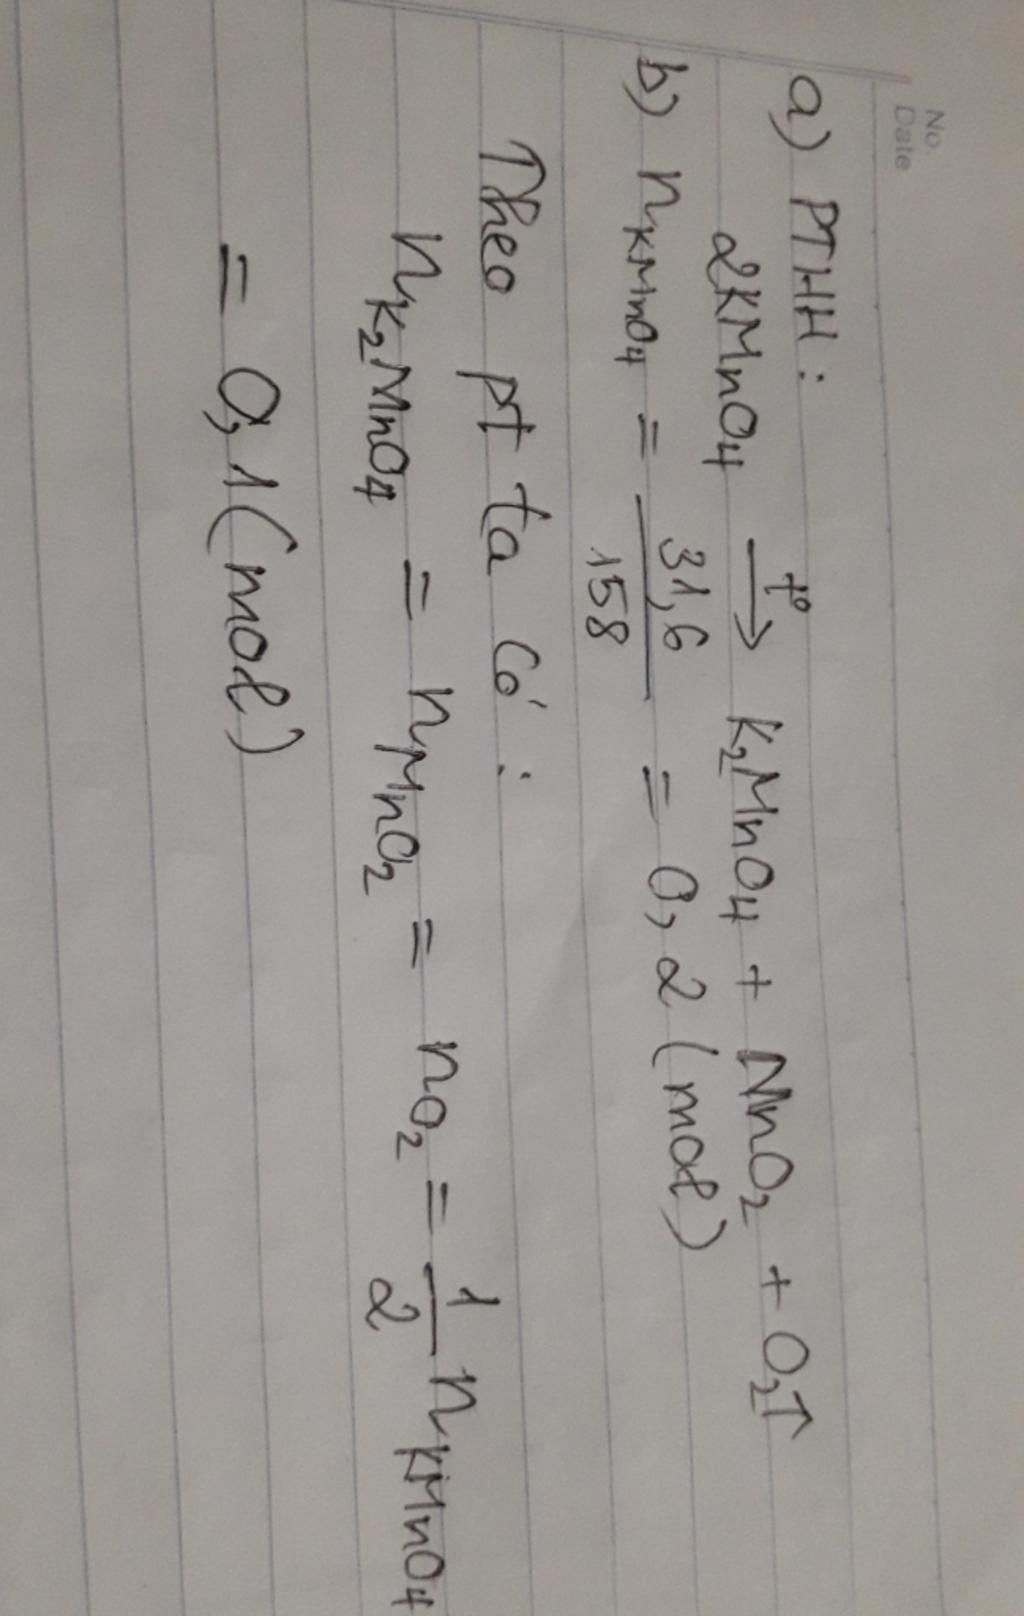 No.
Date
a) PTHH:
2KMnO₄ —t°→ K₂MnO₄ + MnO₂ + O₂↑
b) n_KMnO₄ = 31,6/158 = 0,2 (mol)
Theo pt ta có:
n_K₂MnO₄ = n_MnO₂ = n_O₂ = 1/2 n_KMnO₄
= 0,1 (mol)